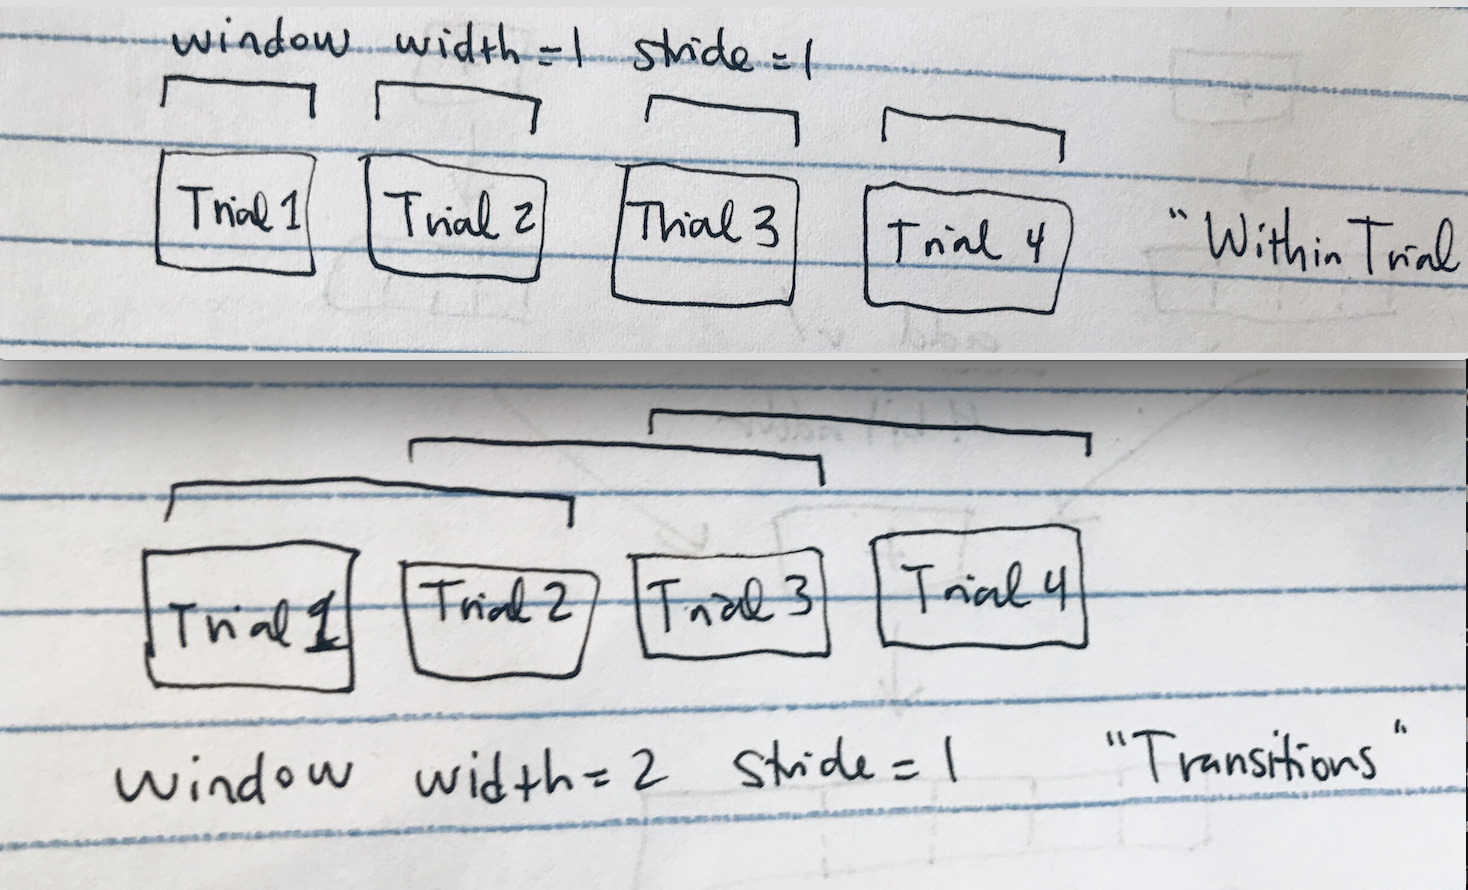 window width=1 stride=1
Trial 1 Trial 2 Trial 3 Trial 4 "Within Trial
Trial 1 Trial 2 Trial 3 Trial 4
window width=2 stride=1 "Transitions"